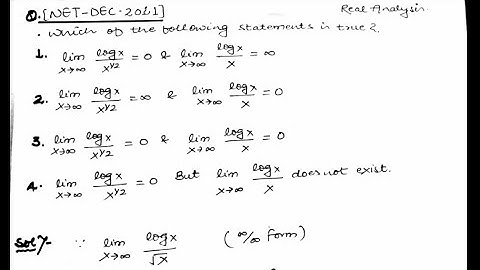 Q. [NET-DEC-2011] Real Analysis.
. Which of the following statements is true?
1. lim x→∞ log x / x^1/2 = 0 & lim x→∞ log x / x = ∞
2. lim x→∞ log x / x^1/2 = ∞ & lim x→∞ log x / x = 0
3. lim x→∞ log x / x^1/2 = 0 & lim x→∞ log x / x = 0
4. lim x→∞ log x / x^1/2 = 0 But lim x→∞ log x / x does not exist.
Sol:- ∵ lim x→∞ log x / √x (∞/∞ form)